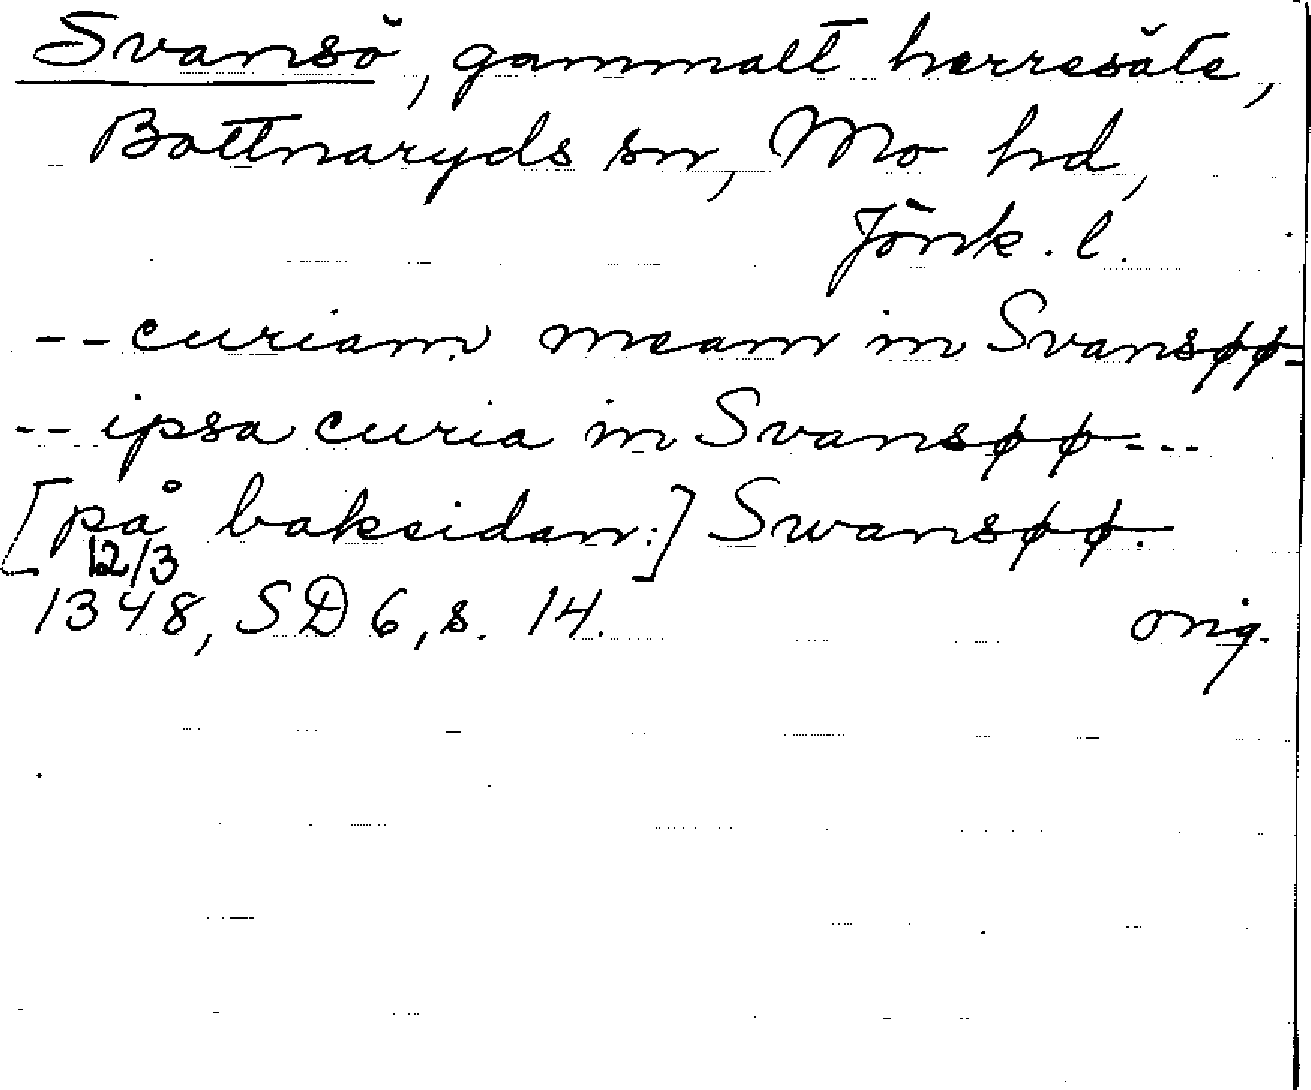 Svansö, gammalt herresäte,
Bottnaryds sn, Mo hd,
Jönk. l.
-- curiam meam in Svansøø-
-- ipsa curia in Svansøø---
[på baksidan:] Swansøø.
12/3
1348, SD 6, s. 14. orig.